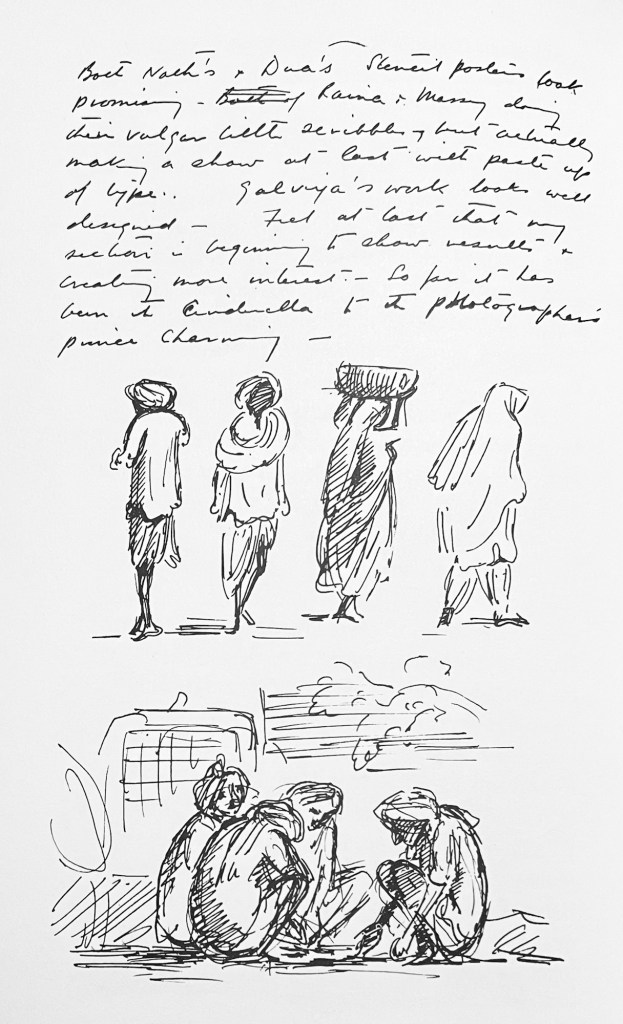 Both Nath's & Dua's Stencil posters look
promising - Both of Raina & Massey doing
their vulgar little scribbles, but actually
making a show at last with paste up
of type.. Galviya's work looks well
designed — Feel at last that my
section is beginning to show results &
creating more interest. — So far it has
been the Cinderella to the photographer's
prince charming —